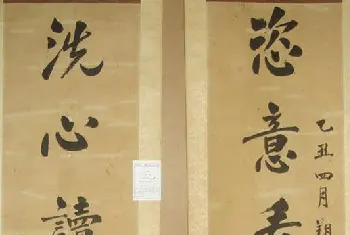 恣意
乙丑四月
洗心讀